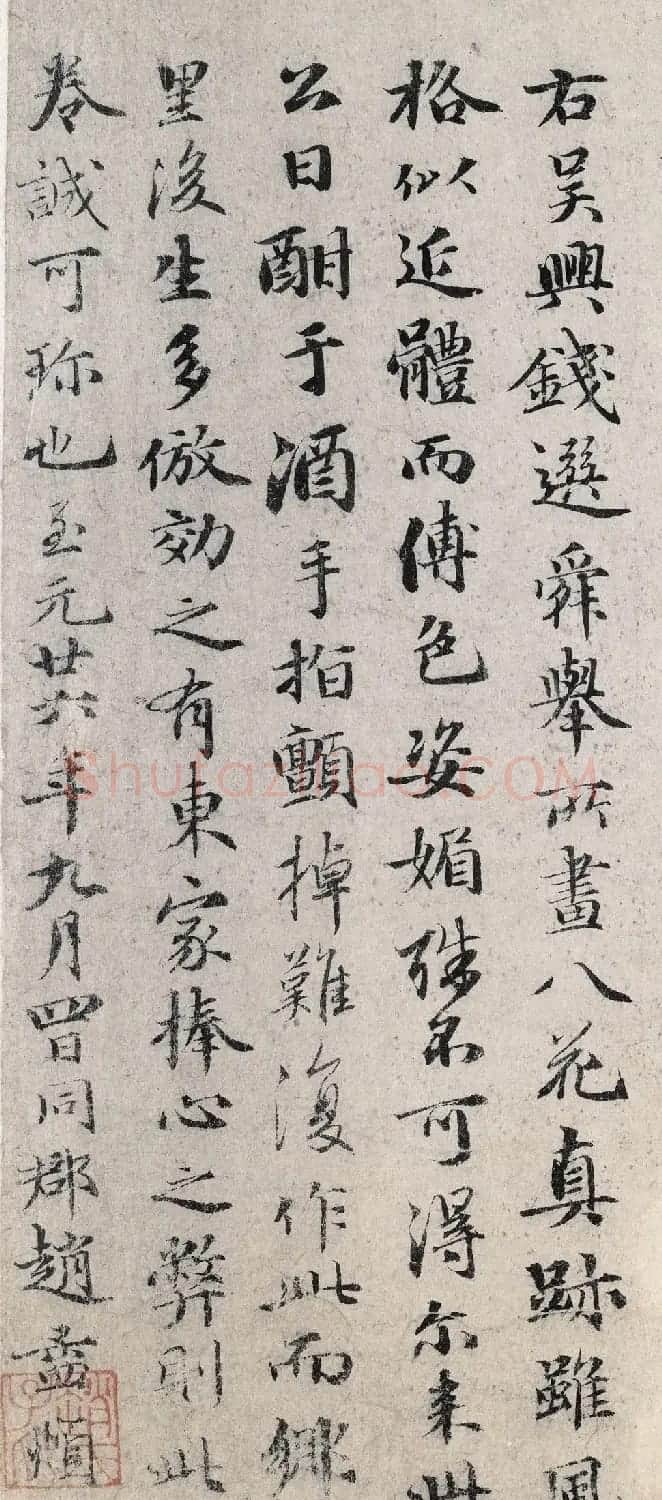 右吳興錢選舜舉所畫八花真跡雖風
格似近體而傅色姿媚殊不可得尓来此
公日酣于酒手指顫掉難復作此而鄉
里後生多倣效之有東家捧心之弊則此
卷誠可珎也至元廿六年九月四日同郡趙孟頫